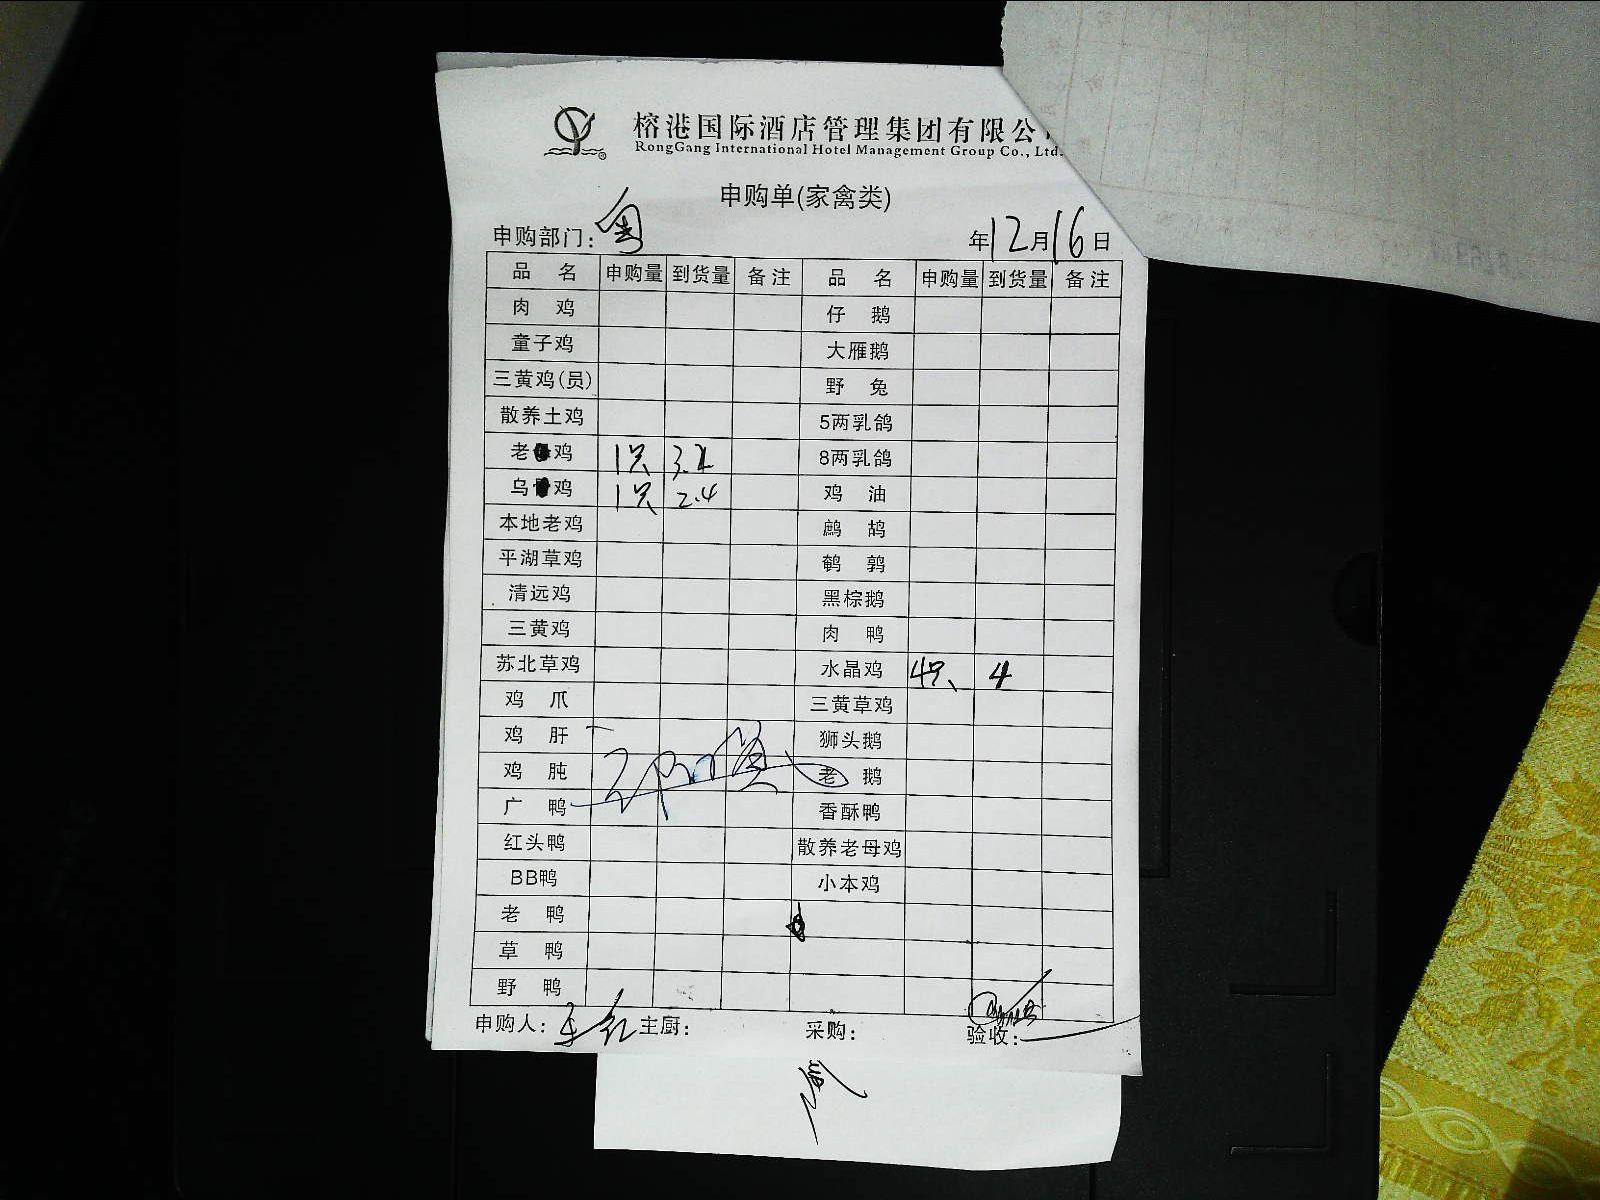 榕港国际酒店管理集团有限公
RongGang International Hotel Management Group Co., Ltd.
申购单(家禽类)
申购部门: 粤 年12月16日
品 名 申购量 到货量 备注 品 名 申购量 到货量 备注
肉 鸡 仔 鹅
童子鸡 大雁鹅
三黄鸡(员) 野 兔
散养土鸡 5两乳鸽
老 鸡 1只 3.2 8两乳鸽
乌 鸡 1只 2.4 鸡 油
本地老鸡 鹧 鸪
平湖草鸡 鹌 鹑
清远鸡 黑棕鹅
三黄鸡 肉 鸭
苏北草鸡 水晶鸡 4只 4
鸡 爪 三黄草鸡
鸡 肝 狮头鹅
鸡 肫 老 鹅
广 鸭 香酥鸭
红头鸭 散养老母鸡
BB鸭 小本鸡
老 鸭
草 鸭
野 鸭
申购人: 主厨: 采购: 验收: